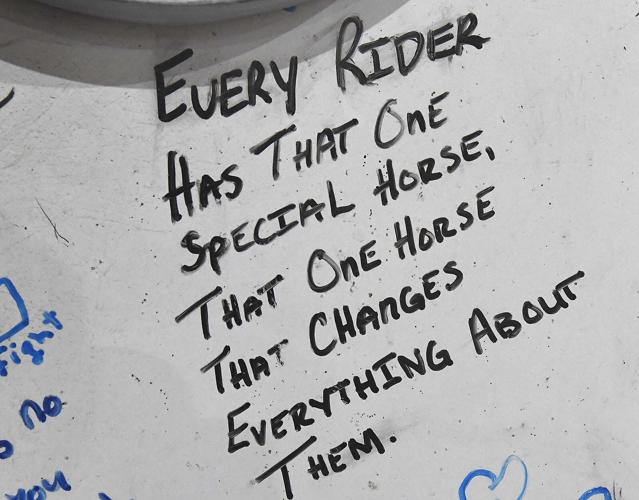 EVERY RIDER
HAS THAT ONE
SPECIAL HORSE,
THAT ONE HORSE
THAT CHANGES
EVERYTHING ABOUT
THEM.
Fight
no
you